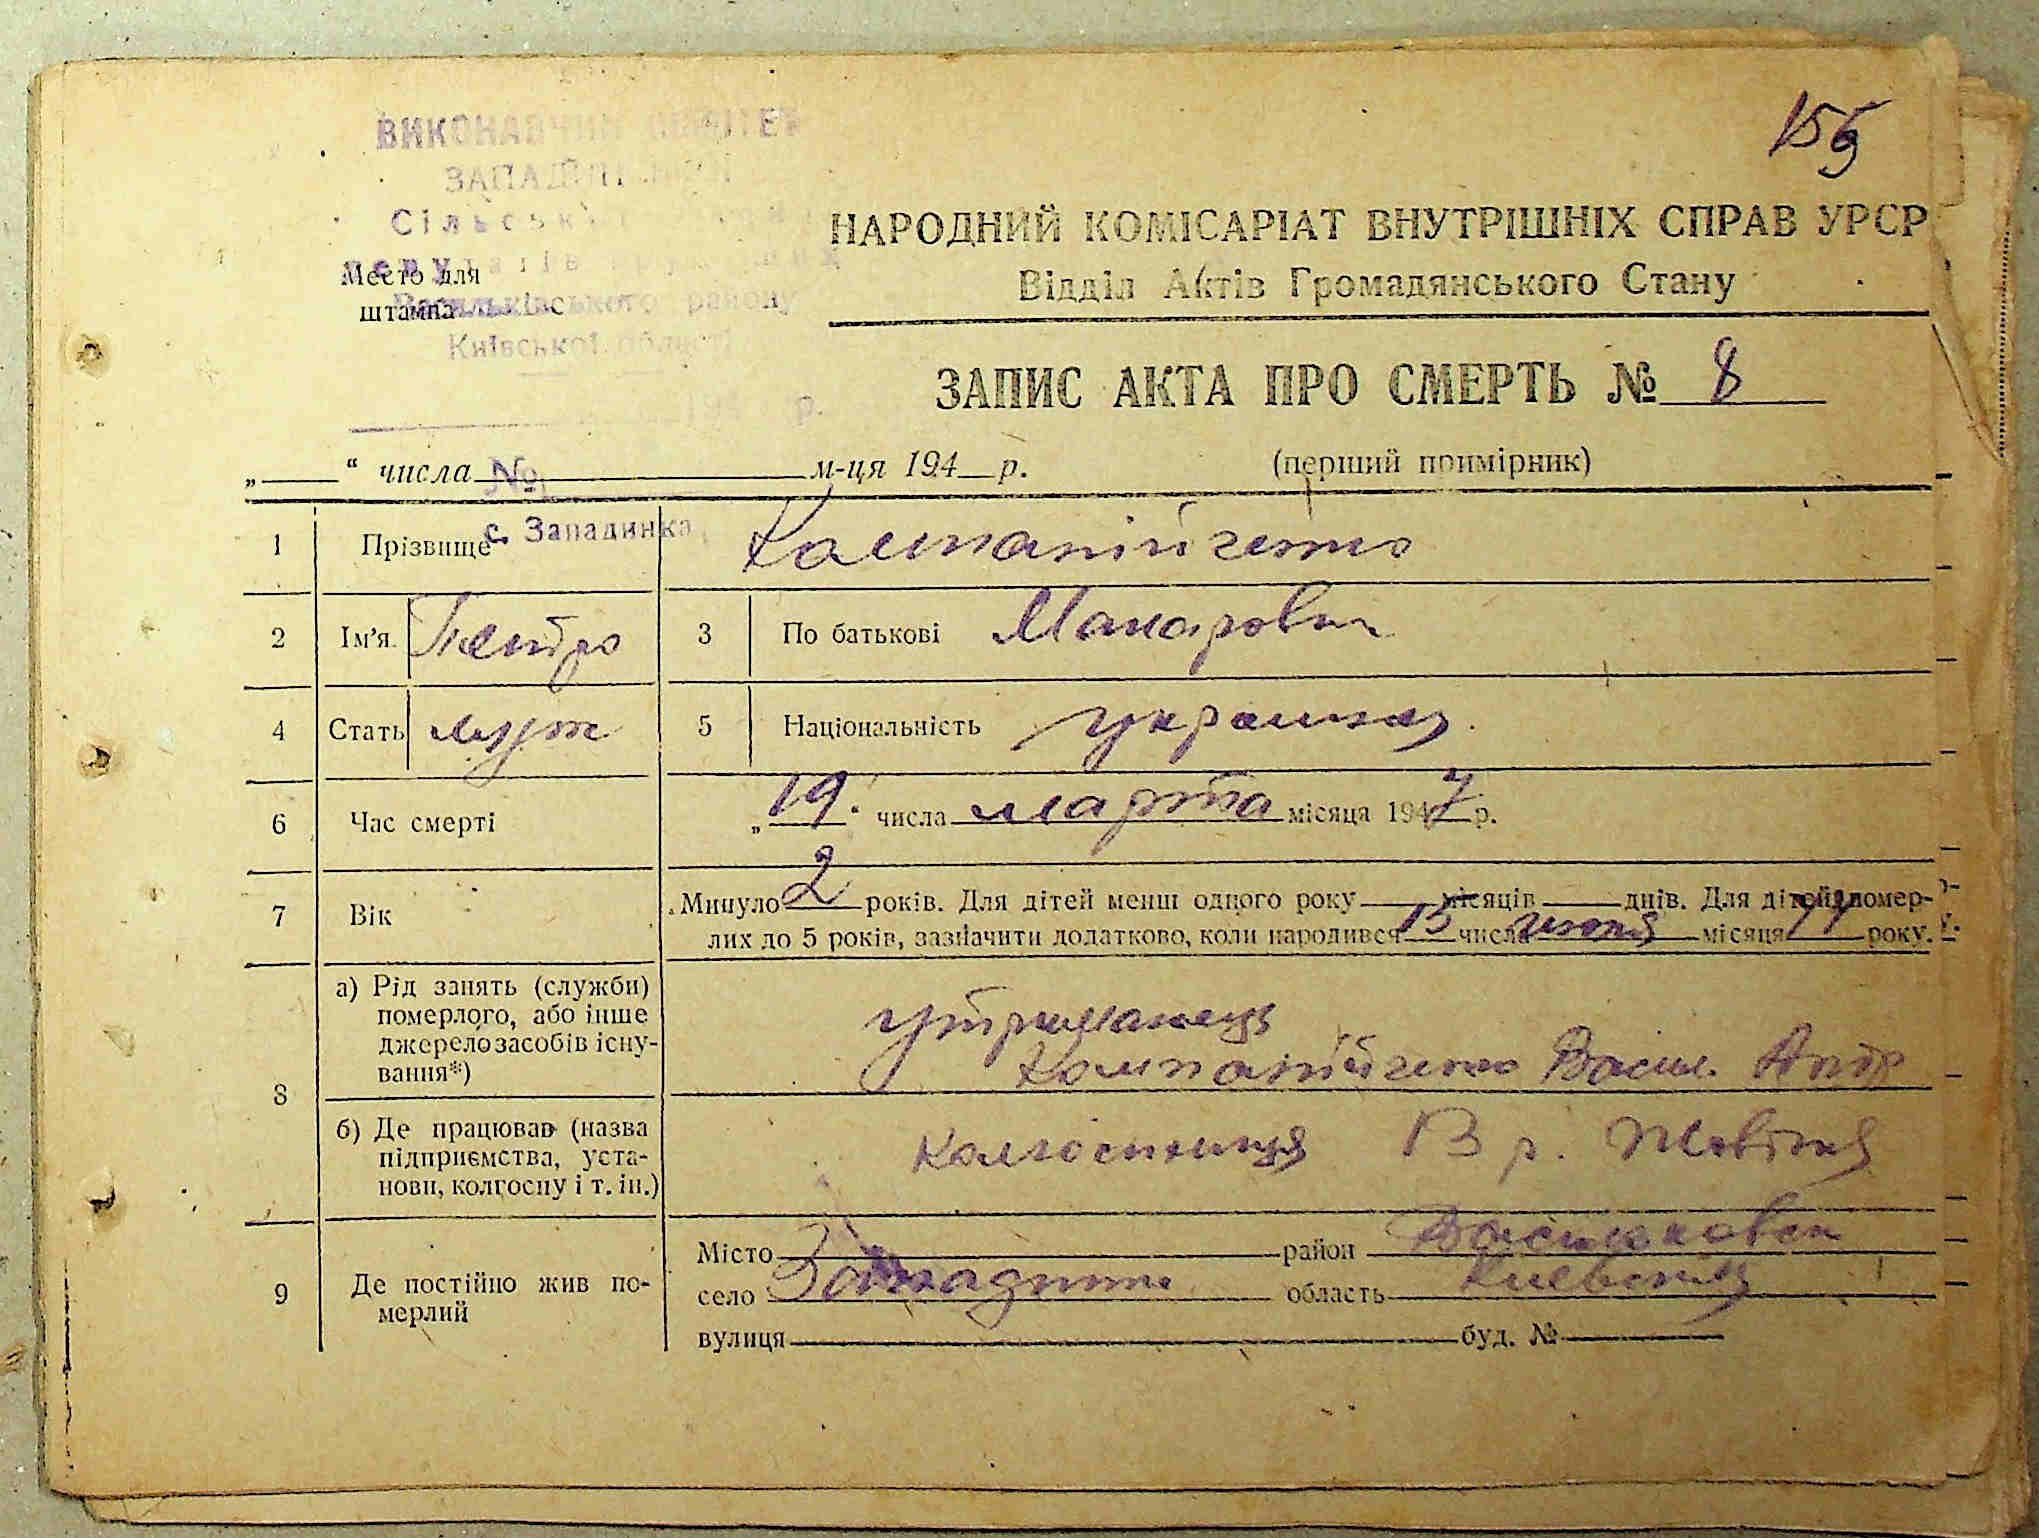 ВИКОНАВЧИЙ КОМІТЕТ
156
ЗАПАДИНСЬКОЇ
Сільської Ради
НАРОДНИЙ КОМІСАРІАТ ВНУТРІШНІХ СПРАВ УРСР
депутатів трудящих
Место для
Відділ Актів Громадянського Стану
штампа
Васильківського району
Київської області
ЗАПИС АКТА ПРО СМЕРТЬ № 8
19 р.
„ “ числа м-ця 194 р.
№
(перший примірник)
с. Западинка
1 Прізвище Компанійченко
2 Ім'я Петро 3 По батькові Макарович
4 Стать муж 5 Національність украинец
6 Час смерті „19“ числа марта місяця 1947 р.
7 Вік Минуло 2 років. Для дітей менш одного року місяців днів. Для дітей, помер-
лих до 5 років, зазначити додатково, коли народився 15 числа июня місяця 44 року.
8 а) Рід занять (служби) померлого, або інше джерело засобів існу-
вання*)
утриманець
Компанійченко Васил. Андр
б) Де працював (назва підприємства, уста-
нови, колгоспу і т. ін.)
колгоспниця 13 р. Жовтня
9 Де постійно жив по-
мерлий
Місто район Васильковск
село Западинка область Киевская
вулиця буд. №